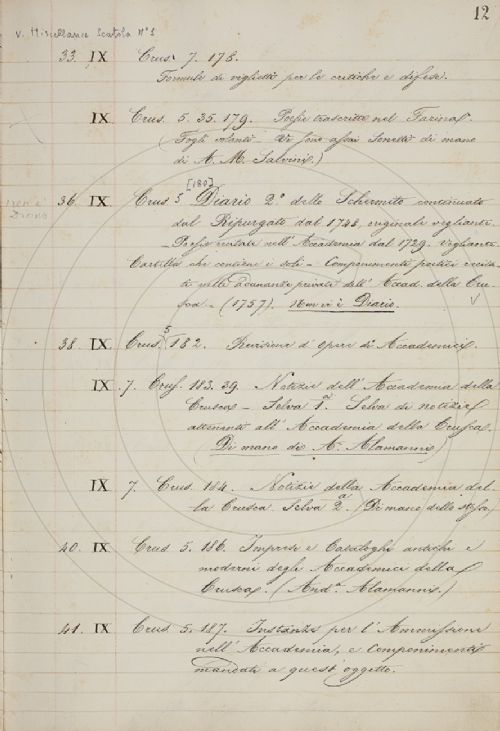 12
V. Miscellanea Scatola N° 1
33. IX Crus. 7. 178.
Formule di viglietti per le critiche e difese.
IX. Crus. 5. 35. 179. Poesie trascritte nel Farinaj.
(Fogli volanti - Vi sono assai Sonetti di mano
di A. M. Salvini.)
non è
Diario
[180]
36. IX. Crus. 5 Diario 2° dello Schermito continuato
dal Ripurgato dal 1748, originale vegliante.
- Poesie recitate nell'Accademia dal 1729. Vegliante
Cartella che contiene i soli - Componimenti poetici recita-
ti nelle adunanze private dell'Accad. della Cru-
sca - (1757). Non vi è Diario. V
38. IX. Crus. 5 182. Revisione d'Opere di Accademici.
IX. 7. Crus. 183. 39. Notizie dell'Accademia della
Crusca - Selva 1a. Selva di notizie
attenenti all'Accademia della Crusca.
(Di mano di A. Alamanni)
IX 7. Crus. 184. Notizie della Accademia del-
la Crusca. Selva 2a. (Di mano dello stesso)
40. IX Crus 5. 186. Imprese e Cataloghi antichi e
moderni degli Accademici della
Crusca. (And.a Alamanni.)
41. IX. Crus. 5. 187. Instanze per l'Ammissione
nell'Accademia, e Componimenti
mandati a quest'oggetto.